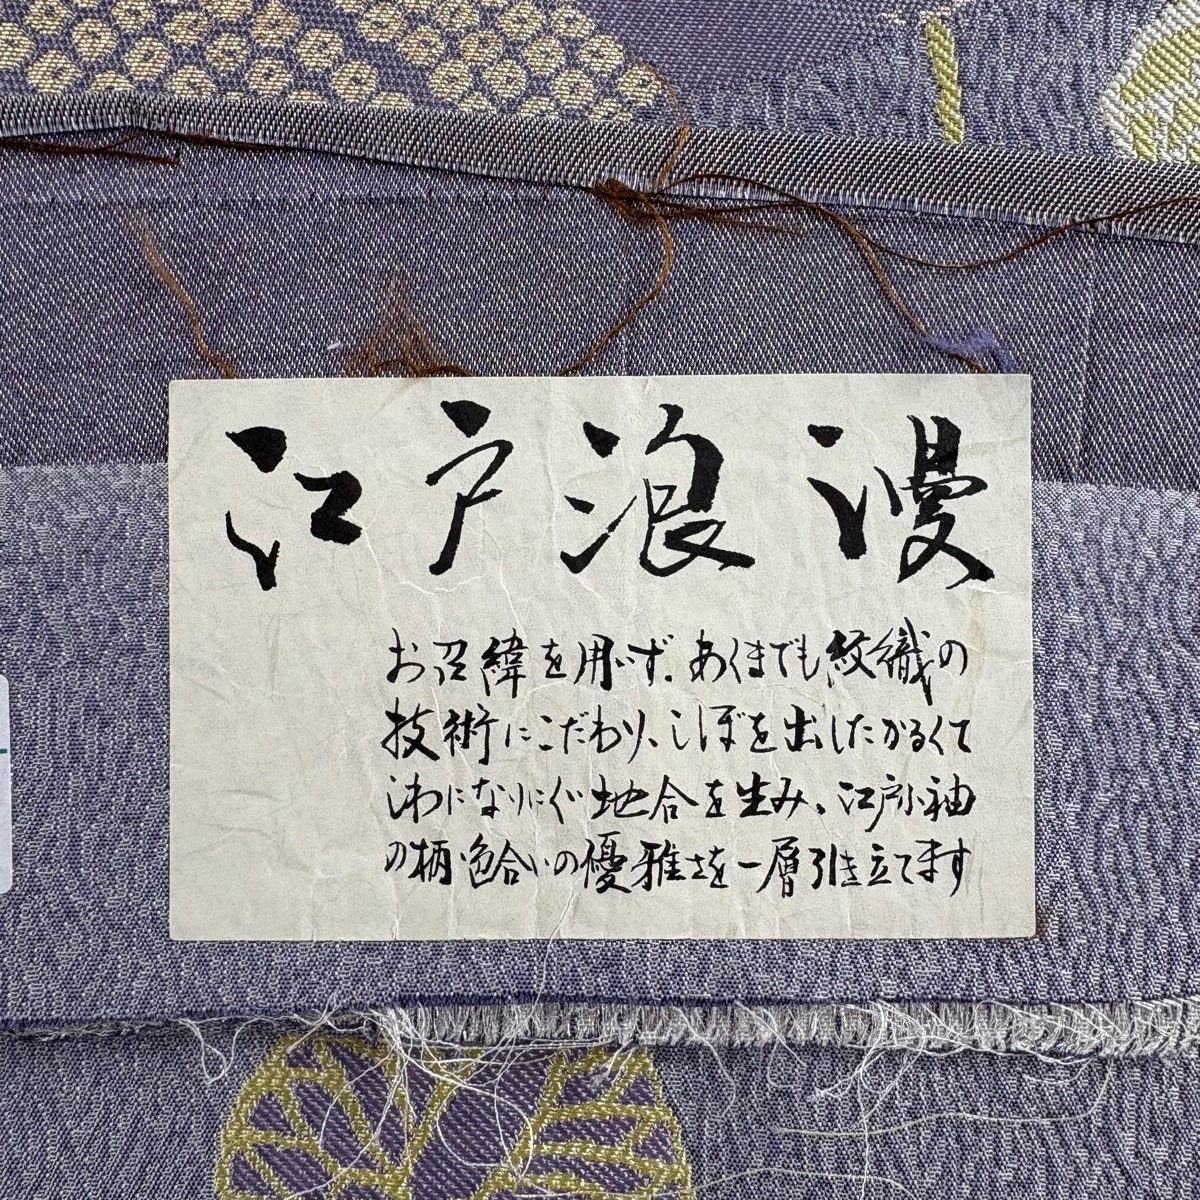 江戸浪漫
お召緯を用いず、あくまでも紋織の
技術にこだわり、しぼを出したかるくて
しわになりにくい地合を生み、江戸小袖
の柄・色合いの優雅さを一層引き立てます